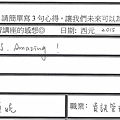 請簡單寫3句心得,讓我們未來可以為
講座的感想☺ 日期:西元 2015
s. Amazing !
職業:資訊管